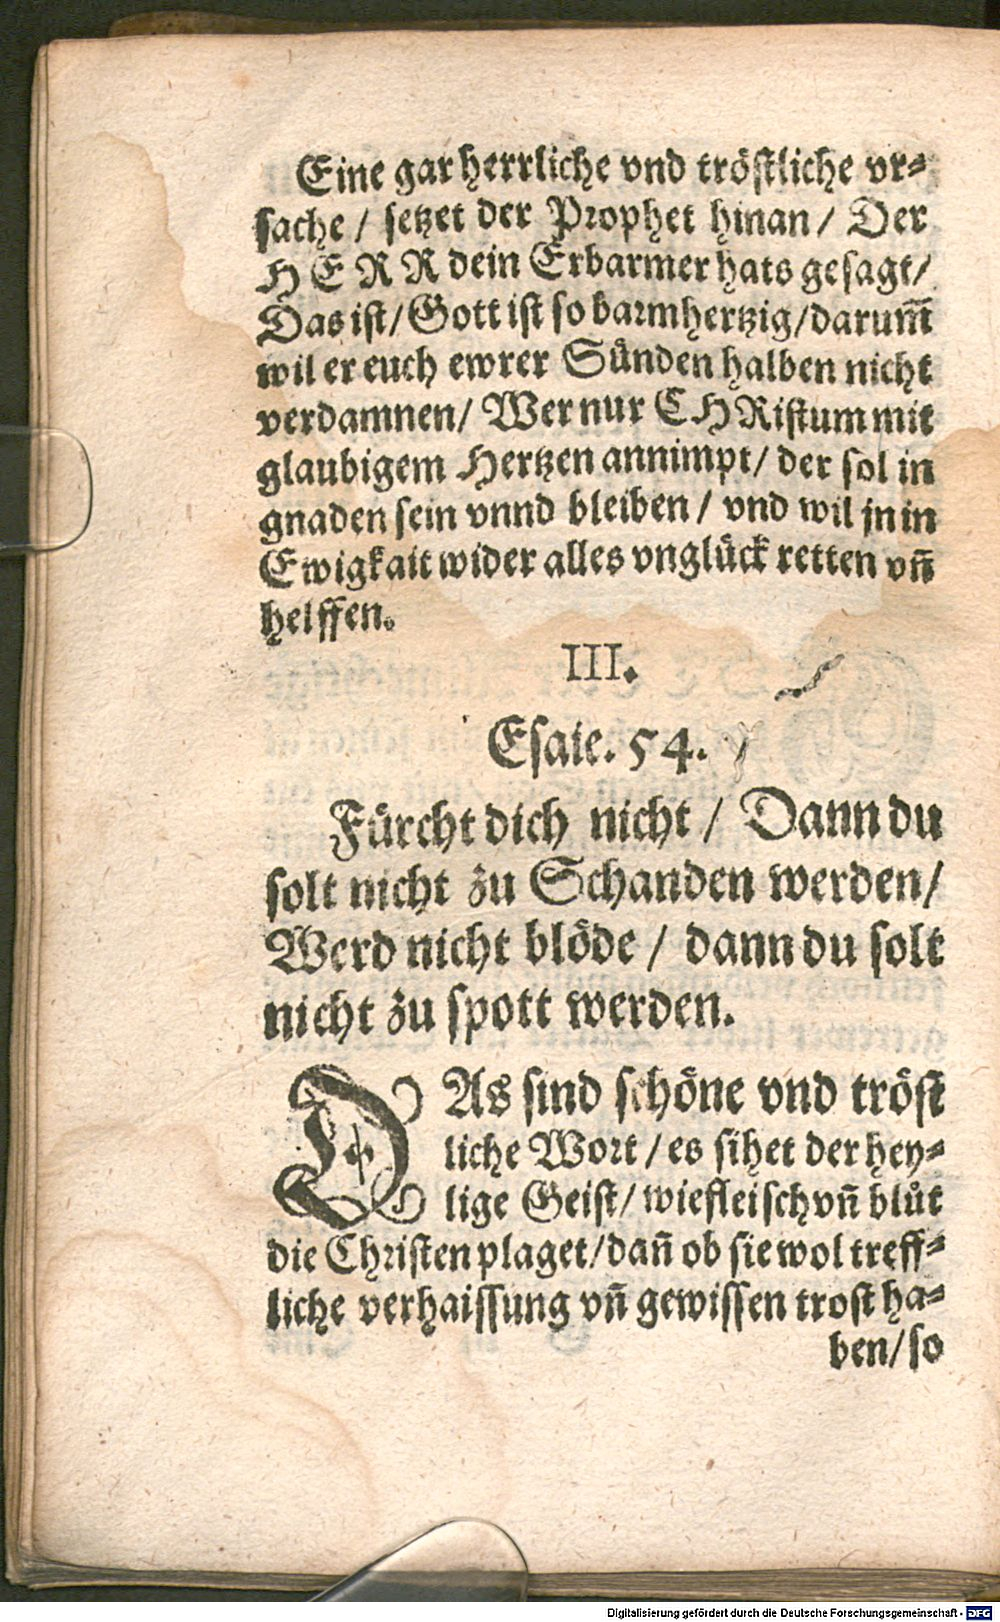 Eine gar herrliche vnd tröstliche vr-
sache / setzet der Prophet hinan / Der
HERR dein Erbarmer hats gesagt/
Das ist/ Gott ist so barmhertzig/ darum̃
wil er euch ewrer Sünden halben nicht
verdamnen/ Wer nur CHRistum mit
glaubigem Hertzen annimpt/ der sol in
gnaden sein vnnd bleiben / vnd wil jn in
Ewigkait wider alles vnglück retten vñ
helffen.
III.
Esaie. 54.
Fürcht dich nicht / Dann du
solt nicht zu Schanden werden/
Werd nicht blöde / dann du solt
nicht zu spott werden.
DAs sind schöne vnd tröst
liche Wort / es sihet der hey-
lige Geist/ wie fleisch vñ blůt
die Christen plaget/ dañ ob sie wol treff-
liche verhaissung vñ gewissen trost ha-
ben/ so
Digitalisierung gefördert durch die Deutsche Forschungsgemeinschaft - DFG